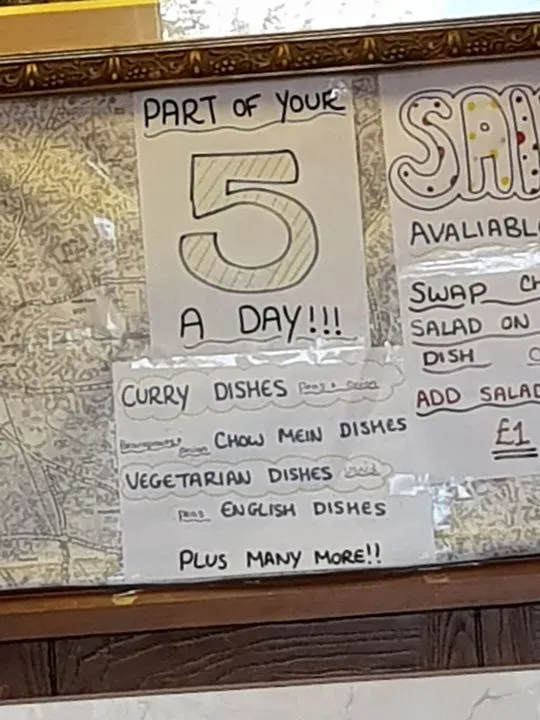 PART OF YOUR
5
A DAY!!!
CURRY DISHES Peas & Onion
Beansprouts & Onion CHOW MEIN DISHES
VEGETARIAN DISHES
peas ENGLISH DISHES
PLUS MANY MORE!!
SAL
AVALIABL
SWAP CH
SALAD ON
DISH
ADD SALAD
£1